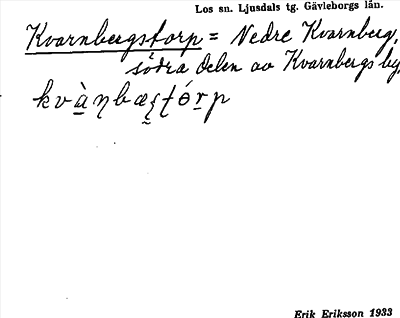 Los sn. Ljusdals tg. Gävleborgs län.
Kvarnbergstorp = Nedre Kvarnberg,
södra delen av Kvarnbergs by.
Erik Eriksson 1933